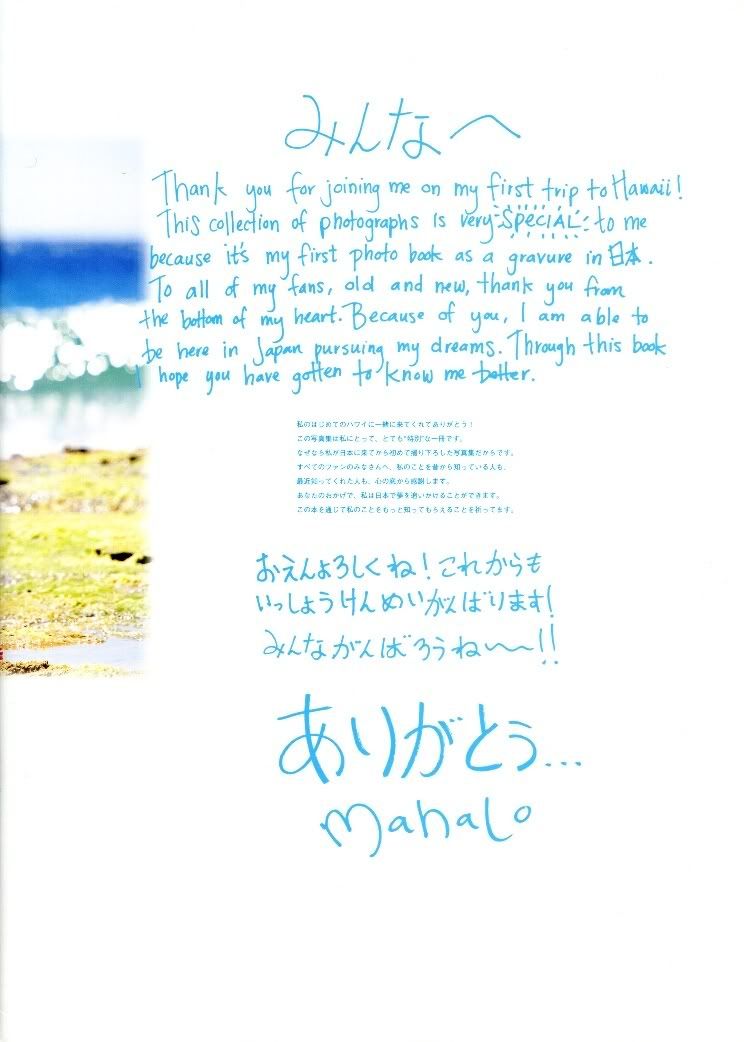 みんなへ
Thank you for joining me on my first trip to Hawaii!
This collection of photographs is very SPECIAL to me
because it's my first photo book as a gravure in 日本.
To all of my fans, old and new, thank you from
the bottom of my heart. Because of you, I am able to
be here in Japan pursuing my dreams. Through this book
I hope you have gotten to know me better.
私のはじめてのハワイに一緒に来てくれてありがとう！
この写真集は私にとって、とても“特別”な一冊です。
なぜなら私が日本に来てから初めて撮り下ろした写真集だからです。
すべてのファンのみなさんへ、私のことを昔から知っている人も、
最近知ってくれた人も、心の底から感謝します。
あなたのおかげで、私は日本で夢を追いかけることができます。
この本を通じて私のことをもっと知ってもらえることを祈ってます。
おえんよろしくね！これからも
いっしょうけんめいがんばります！
みんながんばろうね〜!!
ありがとう...
mahalo